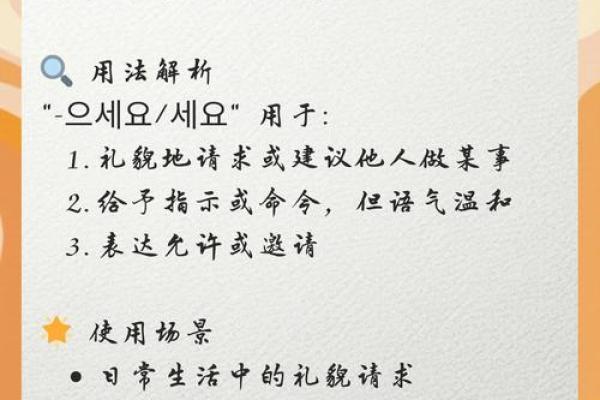 用法解析
"-으세요/세요" 用于:
1. 礼貌地请求或建议他人做某事
2. 给予指示或命令，但语气温和
3. 表达允许或邀请
使用场景
• 日常生活中的礼貌请求